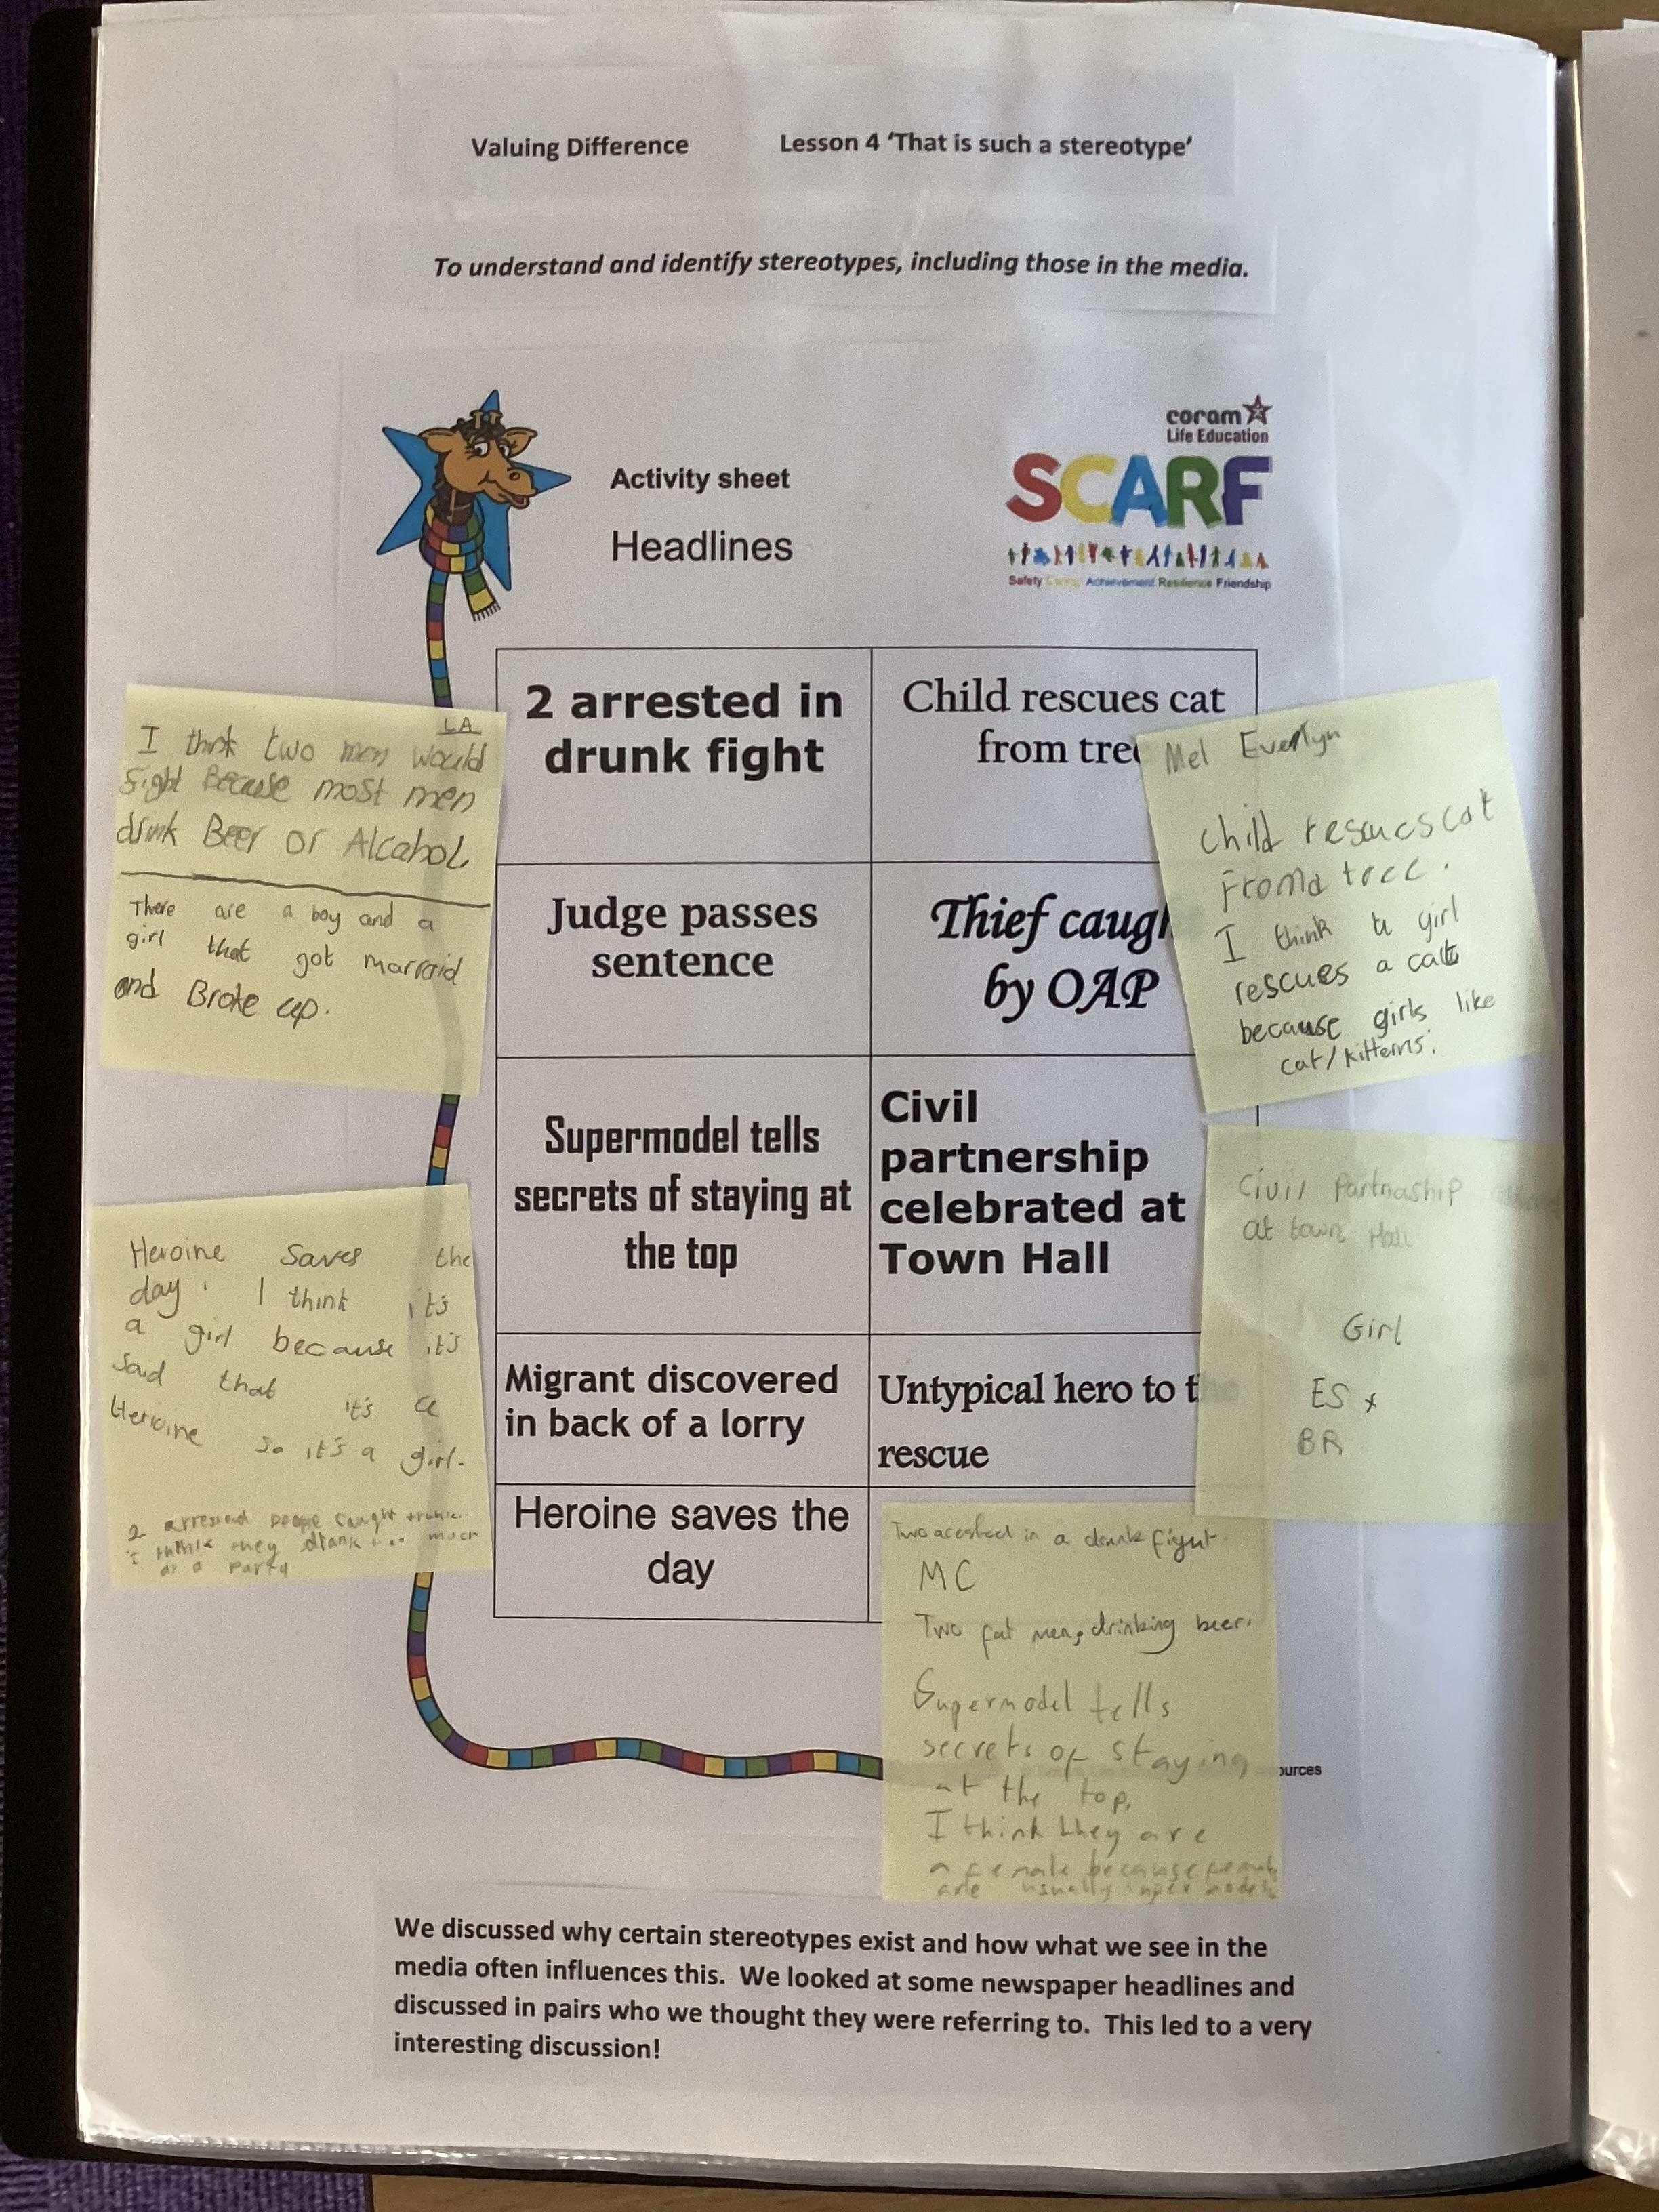 Valuing Difference Lesson 4 ‘That is such a stereotype’
To understand and identify stereotypes, including those in the media.
coram
Life Education
SCARF
Safety Caring Achievement Resilience Friendship
Activity sheet
Headlines
2 arrested in
drunk fight
Child rescues cat
from tree
Judge passes
sentence
Thief caugh
by OAP
Supermodel tells
secrets of staying at
the top
Civil
partnership
celebrated at
Town Hall
Migrant discovered
in back of a lorry
Untypical hero to the
rescue
Heroine saves the
day
LA
I think two men would
fight Because most men
drink Beer or Alcahol
There are a boy and a
girl that got marraid
and Broke up.
Heroine saves the
day. I think it's
a girl because it's
said that it's a
Heroine so it's a girl.
2 arrested people caught
I think they drank much
at a party
Mel Everlyn
child rescues cat
From a tree.
I think a girl
rescues a cat
because girls like
cat/kitterns.
Civil Partnaship
at town Hall
Girl
ES x
BR
Two arested in a drunk fight.
MC
Two fat men, drinking beer.
Supermodel tells
secrets of staying
at the top.
I think they are
a female because
are usually super models
ources
We discussed why certain stereotypes exist and how what we see in the
media often influences this. We looked at some newspaper headlines and
discussed in pairs who we thought they were referring to. This led to a very
interesting discussion!